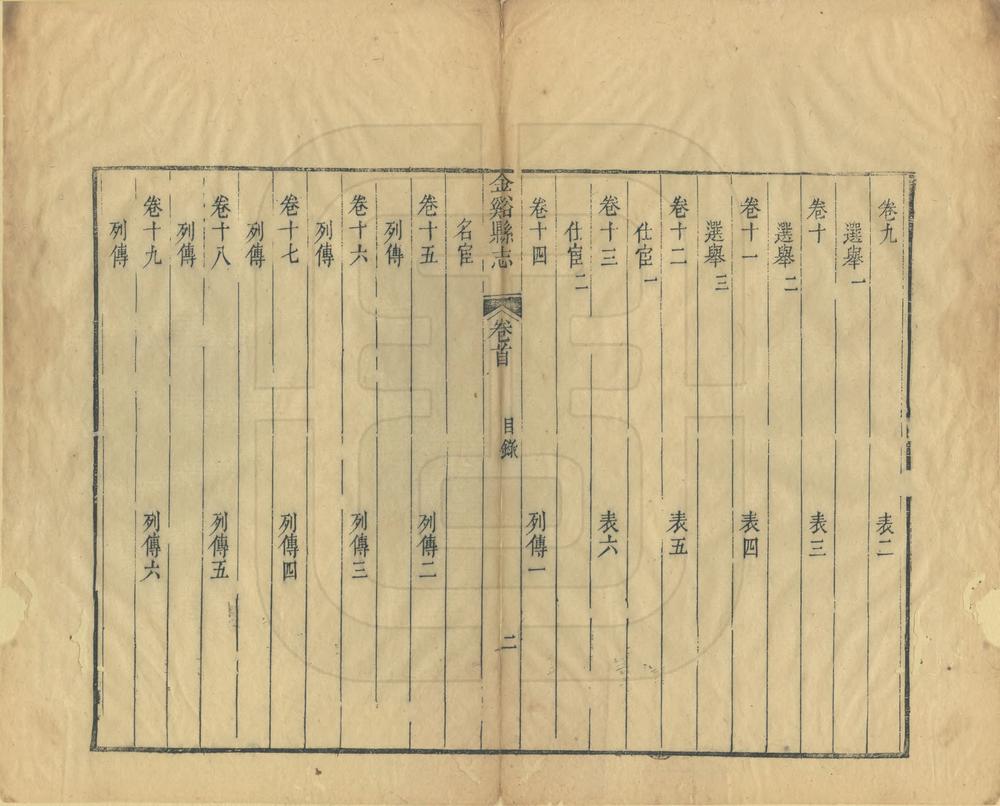 卷九 表二
選舉一
卷十 表三
選舉二
卷十一 表四
選舉三
卷十二 表五
仕宦一
卷十三 表六
仕宦二
卷十四 列傳一
金谿縣志 卷首 目錄 二
名宦
卷十五 列傳二
列傳
卷十六 列傳三
列傳
卷十七 列傳四
列傳
卷十八 列傳五
列傳
卷十九 列傳六
列傳